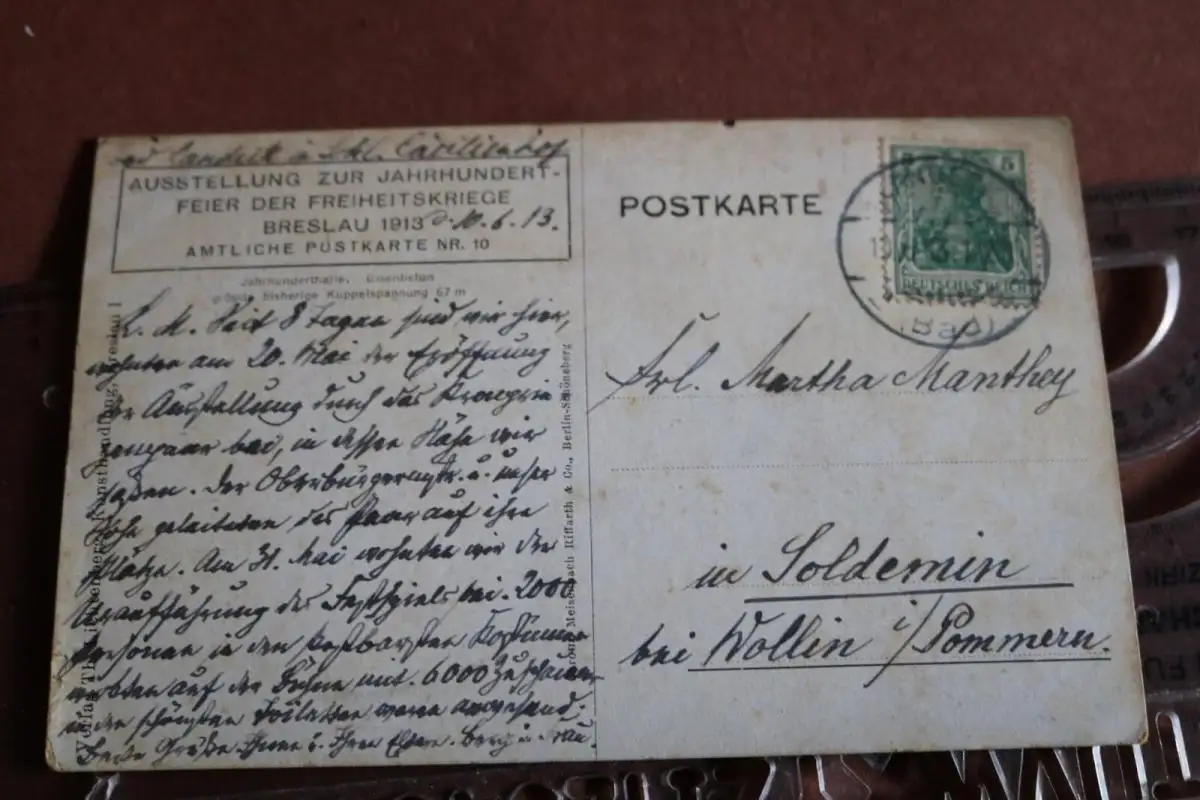 Bad Landeck i. Schl. Cäcilienhof
AUSSTELLUNG ZUR JAHRHUNDERT-
FEIER DER FREIHEITSKRIEGE
BRESLAU 1913 d. 10.6.13.
AMTLICHE POSTKARTE NR. 10
Jahrhunderthalle, Eisenbeton
größte bisherige Kuppelspannung 67 m
L. M. Seit 8 Tagen sind wir hier,
wohnten am 20. Mai der Eröffnung
der Ausstellung durch das Kronprin
zenpaar bei, in dessen Nähe wir
saßen. Der Oberbürgermstr. u. unser
geleiteten das Paar auf ihre
Plätze. Am 31. Mai wohnten wir der
Uraufführung des Festspiels bei. 2000
Personen in den kostbarsten Kostümen
wirkten auf der Bühne mit. 6000 Zuschauer
in den schönsten Toiletten waren anwesend.
Beste Grüße Ihnen u. Ihren Eltern. Berg u. Frau.
Verlag Kunsthandlung, Breslau I
Meisenbach Riffarth & Co., Berlin-Schöneberg
POSTKARTE
5
DEUTSCHES REICH
(Bad)
Frl. Martha Manthey
in Soldemin
bei Wollin i/Pommern.